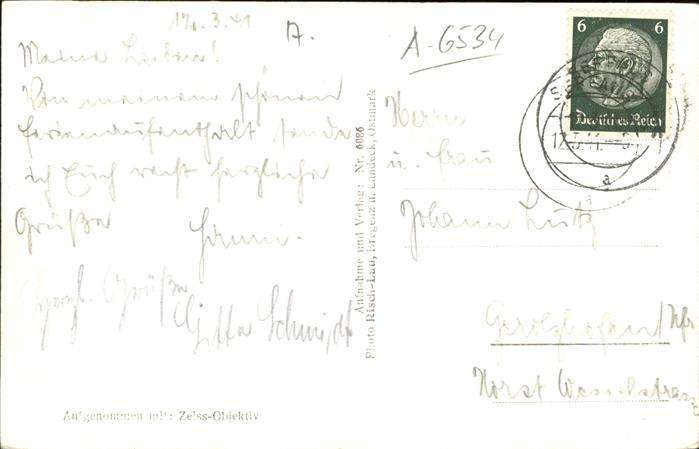 17.3.41
A.
A-6534
Meine Lieben!
Von meinem schönen
Ferienaufenthalt sende
ich Euch recht herzliche
Grüße
Hanni.
Herzl. Grüße
Gitta Schmidt
Aufgenommen mit: Zeiss-Objektiv
Aufnahme und Verlag: Nr. 6086
Photo Risch-Lau, Bregenz u. Landeck, Ostmark
6 6
Deutsches Reich
a
Herrn
u. Frau
Johann Lutz
Gerolzhofen/Ufr
Horst Wesselstrasse